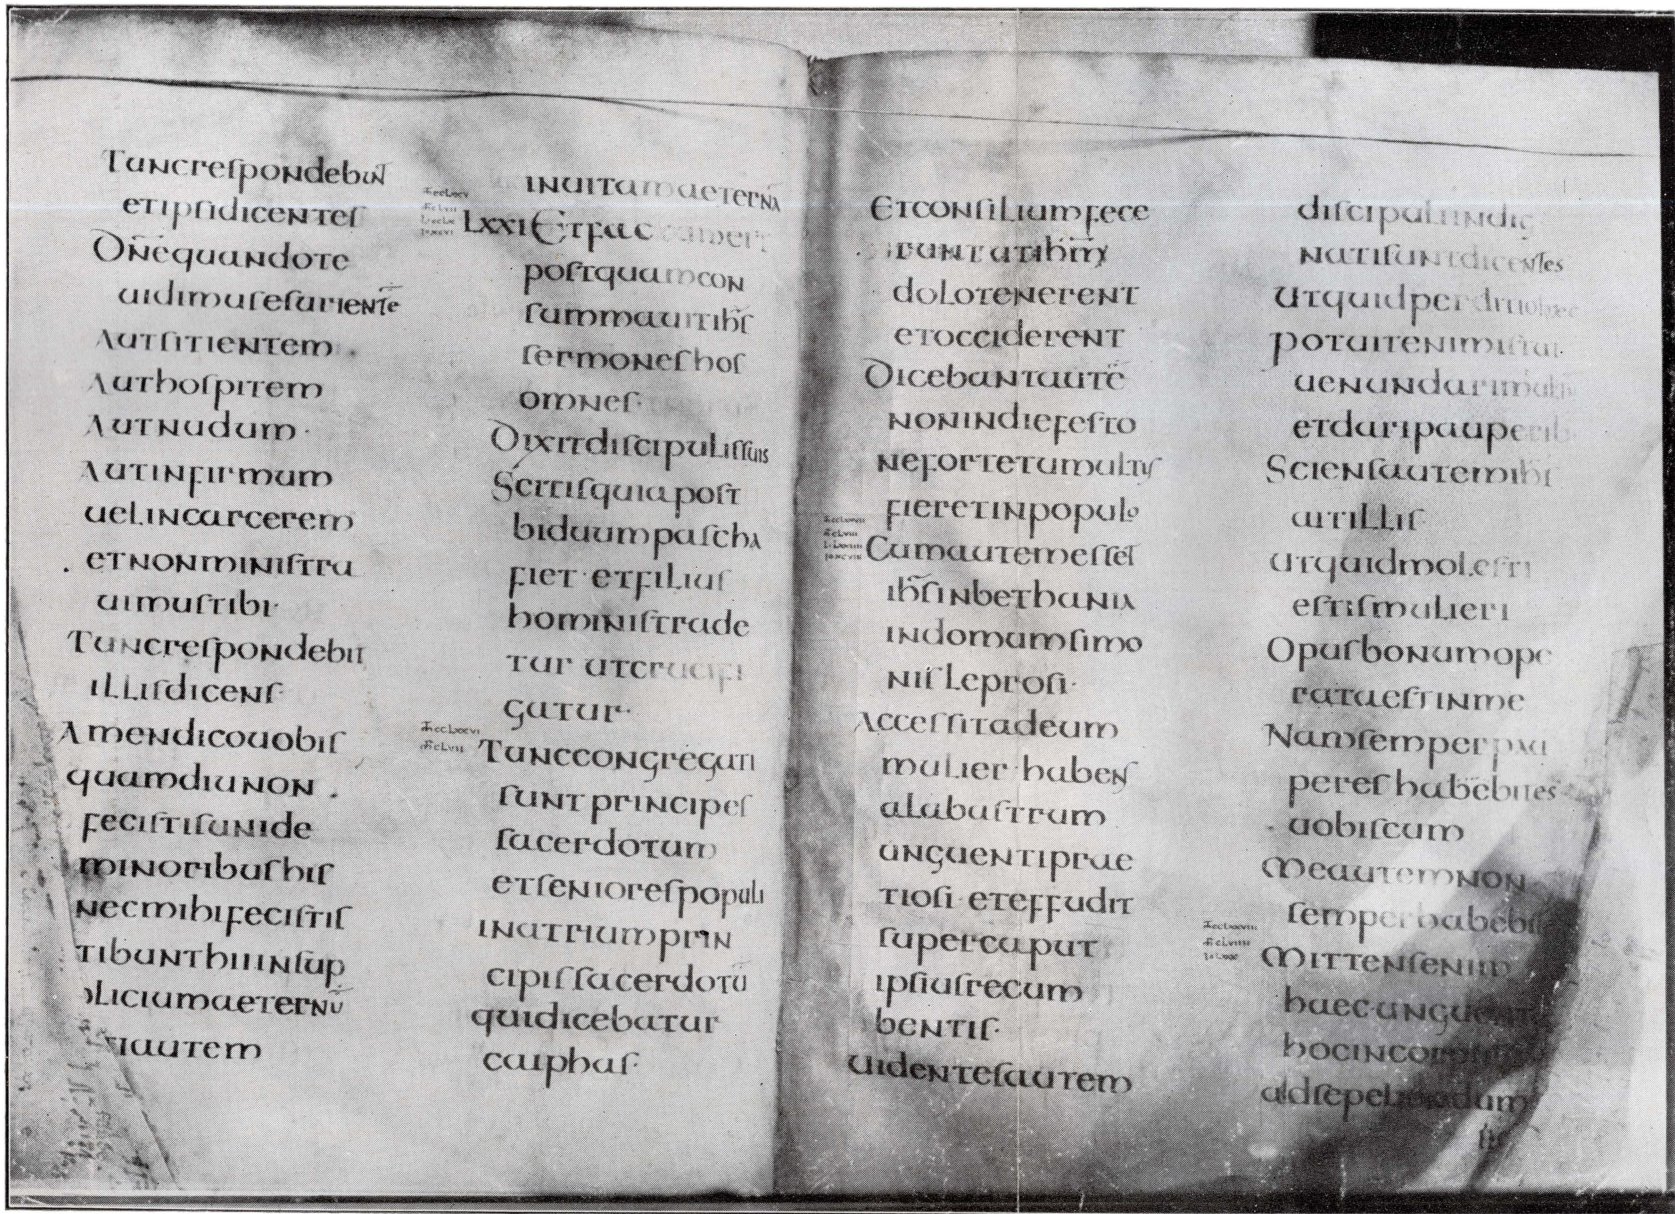 Tuncrespondebunt
etipsidicentes
Dn̄equandote
uidimusesurientē
Autsitientem
Authospitem
Autnudum·
Autinfirmum
uelincarcerem
etnonministra
uimustibi·
Tuncrespondebit
illisdicens·
Amendicouobis
quamdiunon
fecistisunide
minoribushis
necmihifecistis
tibunthiiinsup
pliciumaeternū
tiautem
inuitamaeternā
LXXI Etfac
postquamcon
summauitih̄s
sermoneshos
omnes·
Dixitdiscipulissuis
Scitisquiapost
biduumpascha
fiet·etfilius
hoministrade
tur utcrucifi
gatur·
Tunccongregati
suntprincipes
sacerdotum
etseniorespopuli
inatriumprin
cipissacerdotū
quidicebatur
caiphas·
Etconsiliumfece
runtutih̄m̄
dolotenerent
etocciderent
Dicebantautē
nonindiefesto
nefortetumultus
fieretinpopulo
Cumautemesset
ih̄sinbethania
indomumsimo
nisleprosi·
Accessitadeum
mulier·habens
alabustrum
unguentiprae
tiosi·eteffudit
supercaput
ipsiusrecum
bentis·
uidentesautem
discipuliindig
natisuntdicentes
Utquidperditiohaec
potuitenimistut
uenundarimulto
etdaripauperib
Sciensautemih̄s
aitillis·
Utquidmolesti
estismulieri
Opusbonumope
rataestinme
Namsemperpau
pereshabēbites
uobiscum
Meautemnon
semperhabebitis
Mittensenim
haecunguent
hocincorpus
adsepeliendum